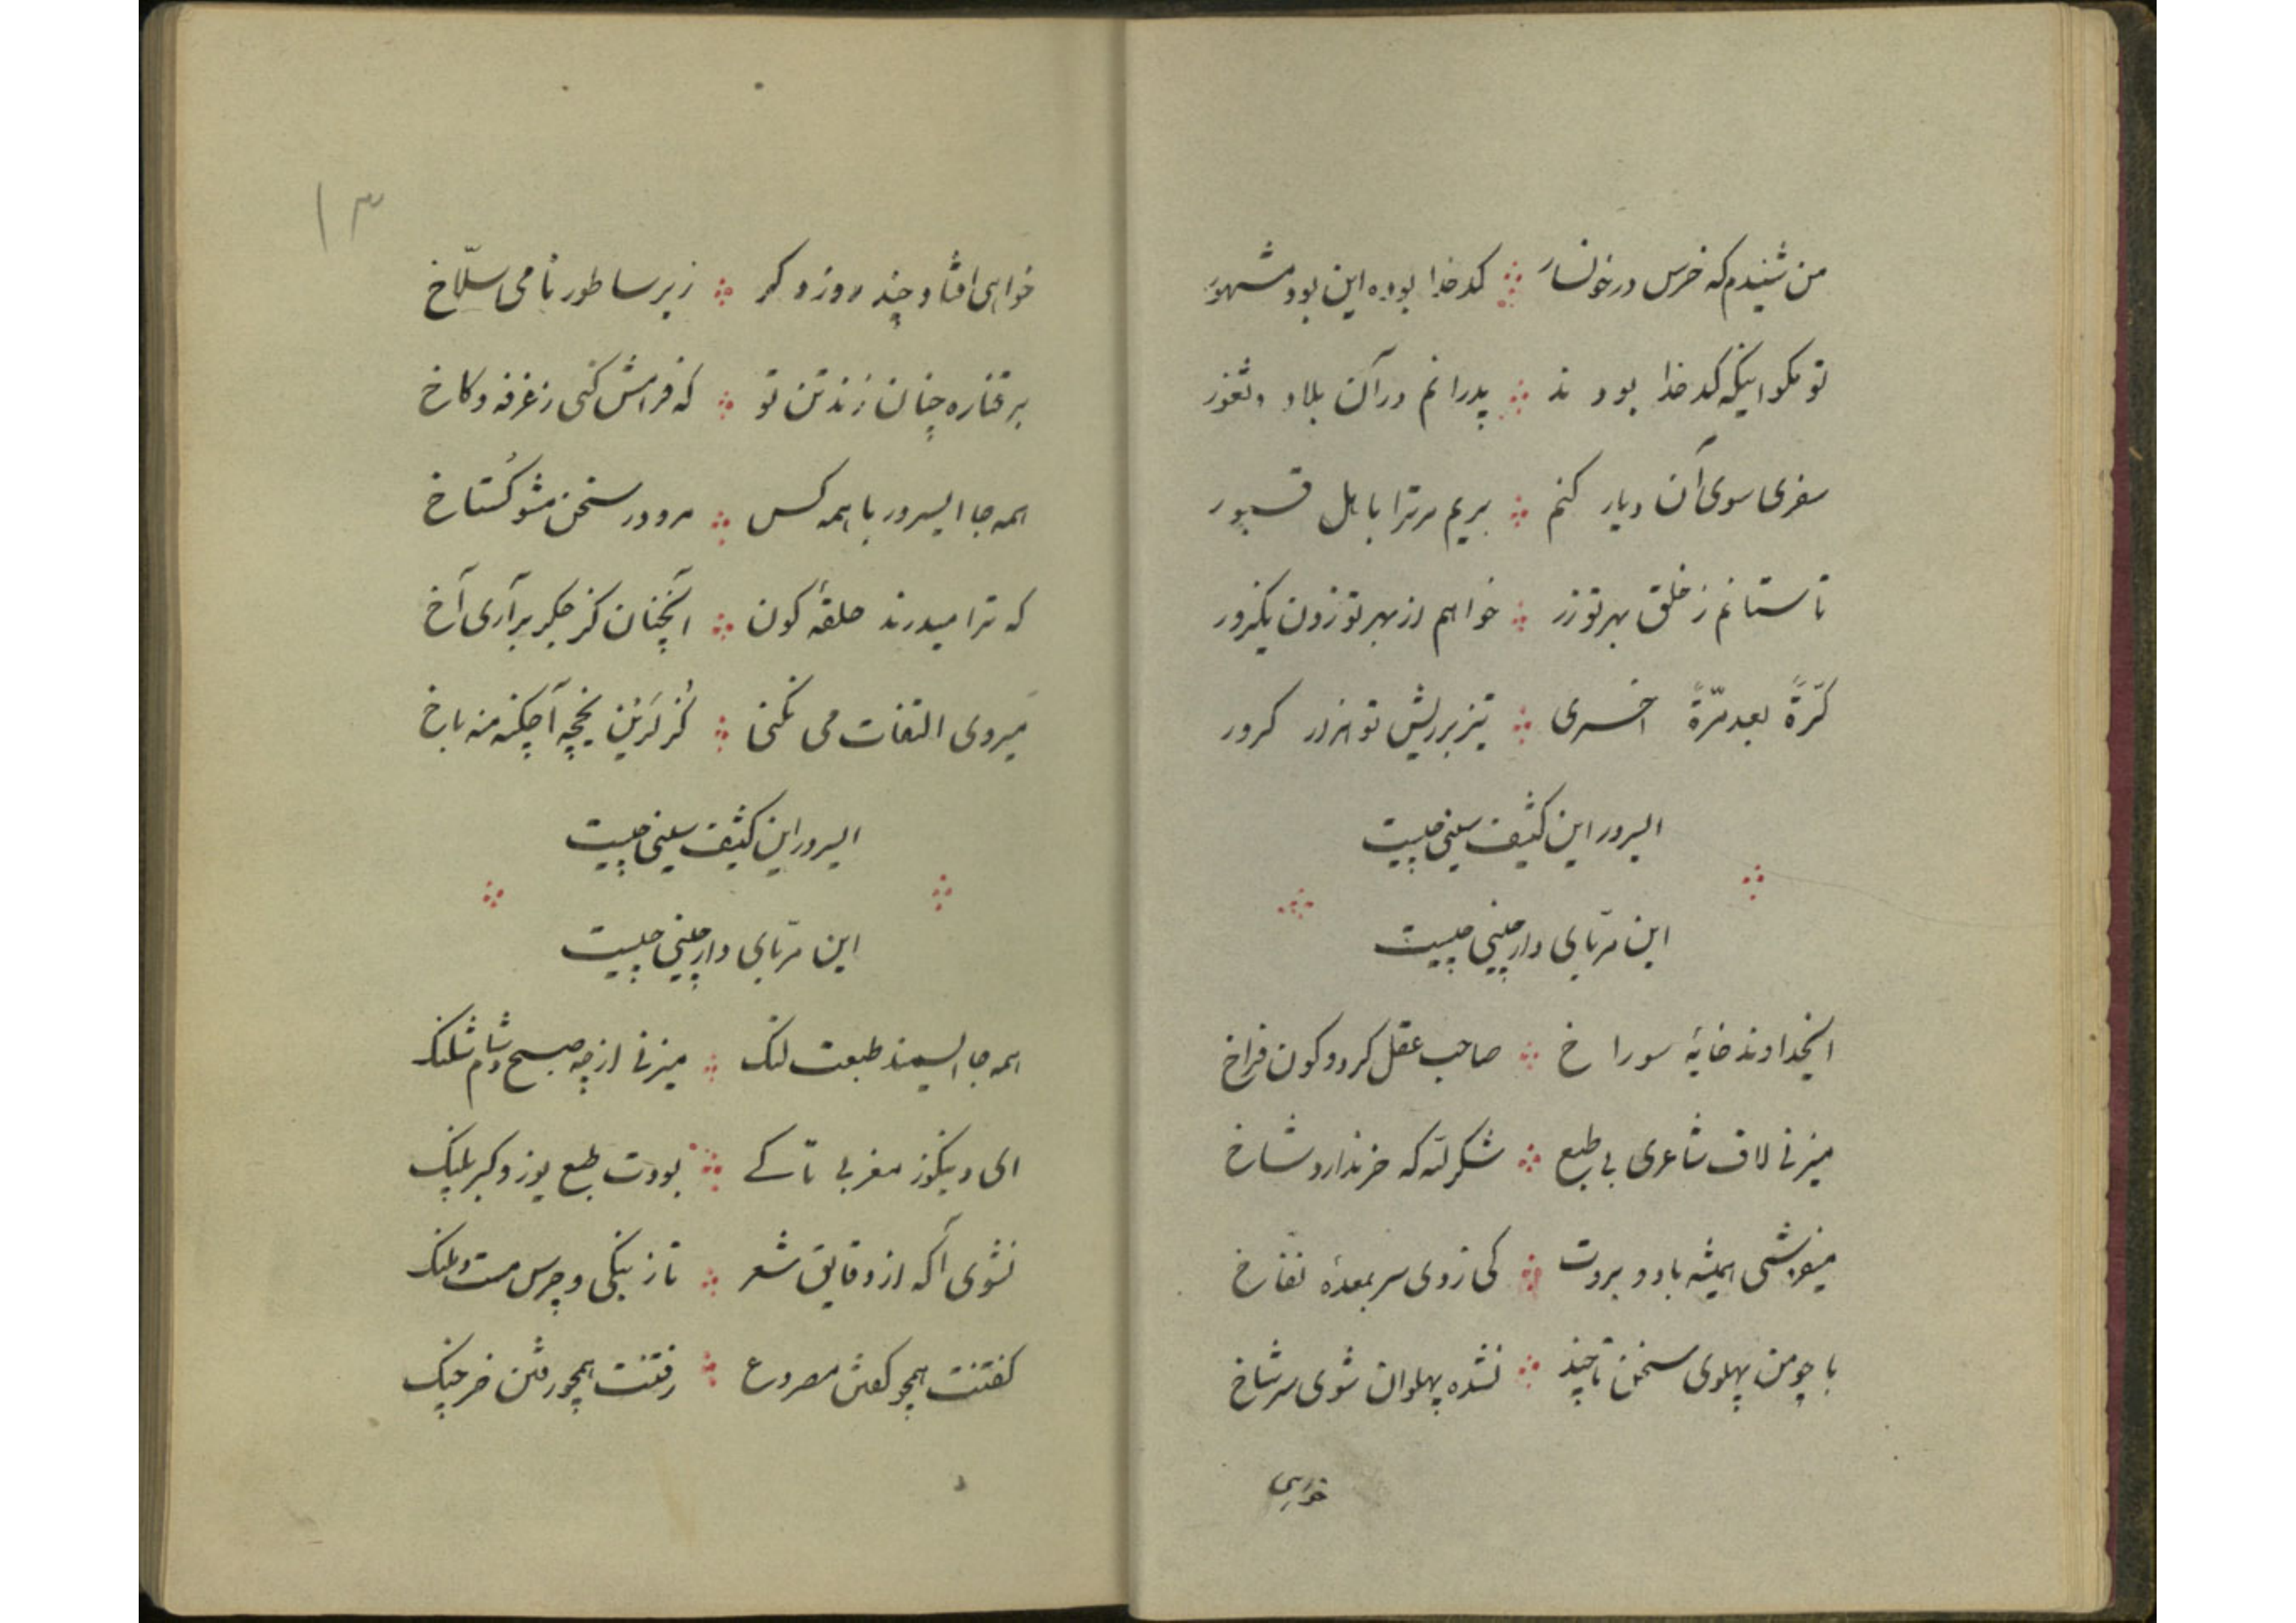 من شنیدم که خرس در خونسار کدخدا بوده این بود مشهور
تو مکو اینکه کدخدا بودند پدرانم در آن بلاد و ثغور
سفری سوی آن دیار کنم بریم مرترا باهل قبور
تا ستانم ز خلق بهر تو زر خواهم از بهر تو زدن یکزور
کرّةً بعد مرّةً اخری تیز بر ریش تو هزار کرور
ایسرور این کثیف سینی چیست
این مربّای دارچینی چیست
ایخداوند خایهٔ سوراخ صاحب عقل کرد و کون فراخ
میزنی لاف شاعری بی طبع شکر لله که خر ندارد شاخ
میفروشی همیشه باد و بروت کی زدی سر بمعدهٔ نفّاخ
با چو من پهلوی سخن تا چند نشده پهلوان شوی سرشاخ
خواهی
۱۳
خواهی افتاد چند روز دکر زیر ساطور نامی سلّاخ
بر قناره چنان زند تن تو که فرامش کنی ز غرفه و کاخ
همه جا ایسرور با همه کس مرو در سخن مشو کُستاخ
که ترا میدرند حلقهٔ کون آنچنان کز جکر برآری آخ
میروی التفات می نکنی کُزلرَیْن یخچه آچکنه منه باخ
ایسرور این کثیف سینی چیست
این مربّای دارچینی چیست
همه جا ایسمند طبعت لنک میزنی از چه صبح و شام شلنک
ای دبنکوز مغربی تا کے بودت طبع یوز و کبر پلنک
نشوی آکه از دقایق شعر تا ز بنکی و چرس مست و ملنک
کفتنت همچو کفتن مصروع رفتنت همچو رفتن خرچنک